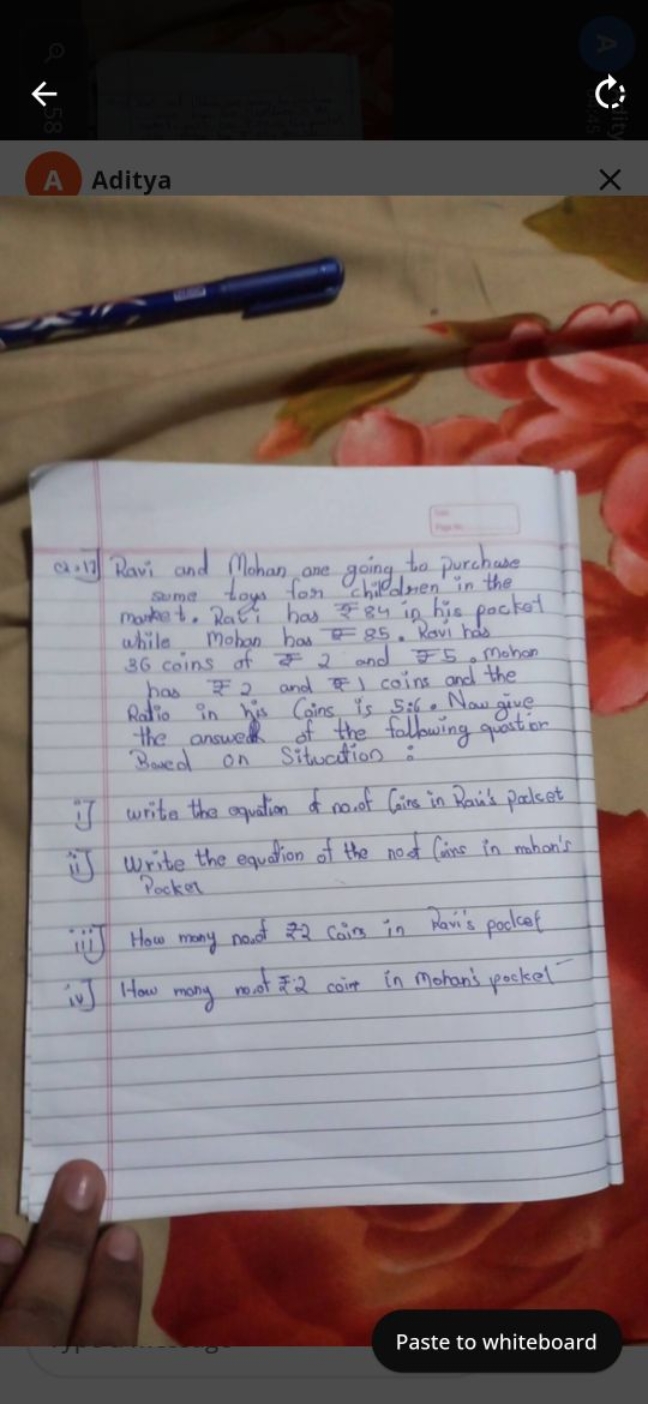 A Aditya
Q.17] Ravi and Mohan are going to purchase
some toys for children in the
market. Rati has ₹84 in his pocket
while Mohan has ₹85. Ravi has
36 coins of ₹ 2 and ₹5. Mohan
has ₹2 and ₹1 coins and the
Ratio in his Coins is 5:6. Now give
the answer of the following
Based on Situation :
i] write the equation of no.of Coins in Ravi's Pocket
ii] Write the equation of the no of Coins in mohan's
Pocket
iii] How many no.of ₹2 Coins in Ravi's pocket
iv] How many no.of ₹2 coin in Mohan's pocket
Paste to whiteboard